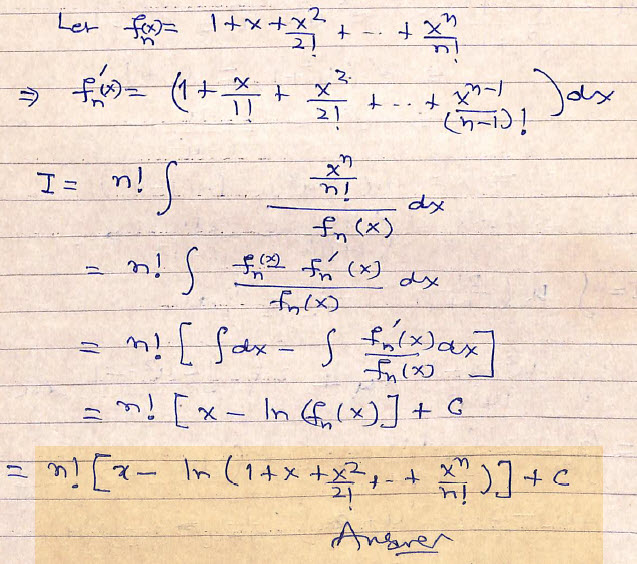 Let fₙ(x) = 1 + x + x²/2! + -- + xⁿ/n!
⇒ fₙ'(x) = (1 + x/1! + x²/2! + -- + xⁿ⁻¹/(n-1)!) dx
I = n! ∫ (xⁿ/n!)/fₙ(x) dx
= n! ∫ (fₙ(x) fₙ'(x))/fₙ(x) dx
= n! [∫dx - ∫ fₙ'(x)dx/fₙ(x)]
= n! [x - ln (fₙ(x)] + C
= n! [x - ln (1 + x + x²/2! + -- + xⁿ/n!)] + C
Answer